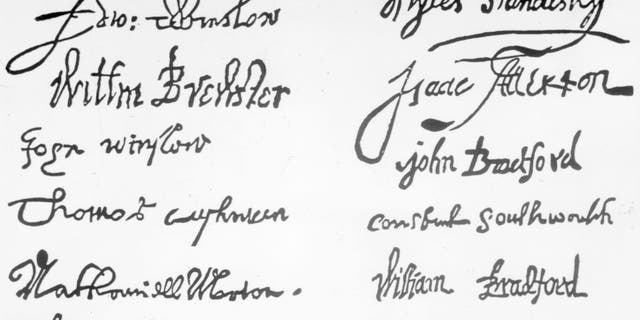 Edw: Winslow
Myles Standish
Willm Brewster
Isaac Allerton
John Winslow
John Bradford
Thomas Cushman
Constant Southworth
Nathaniell Morton.
William Bradford